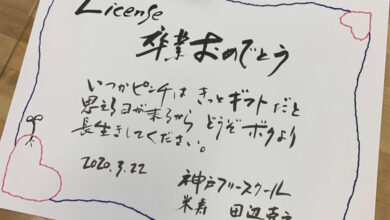 License
卒業おめでとう
いつかピンチは きっとギフトだと
思える日が来るから どうぞボクより
長生きしてください。
2020.3.22
神戸フリースクール
米寿 田辺克之